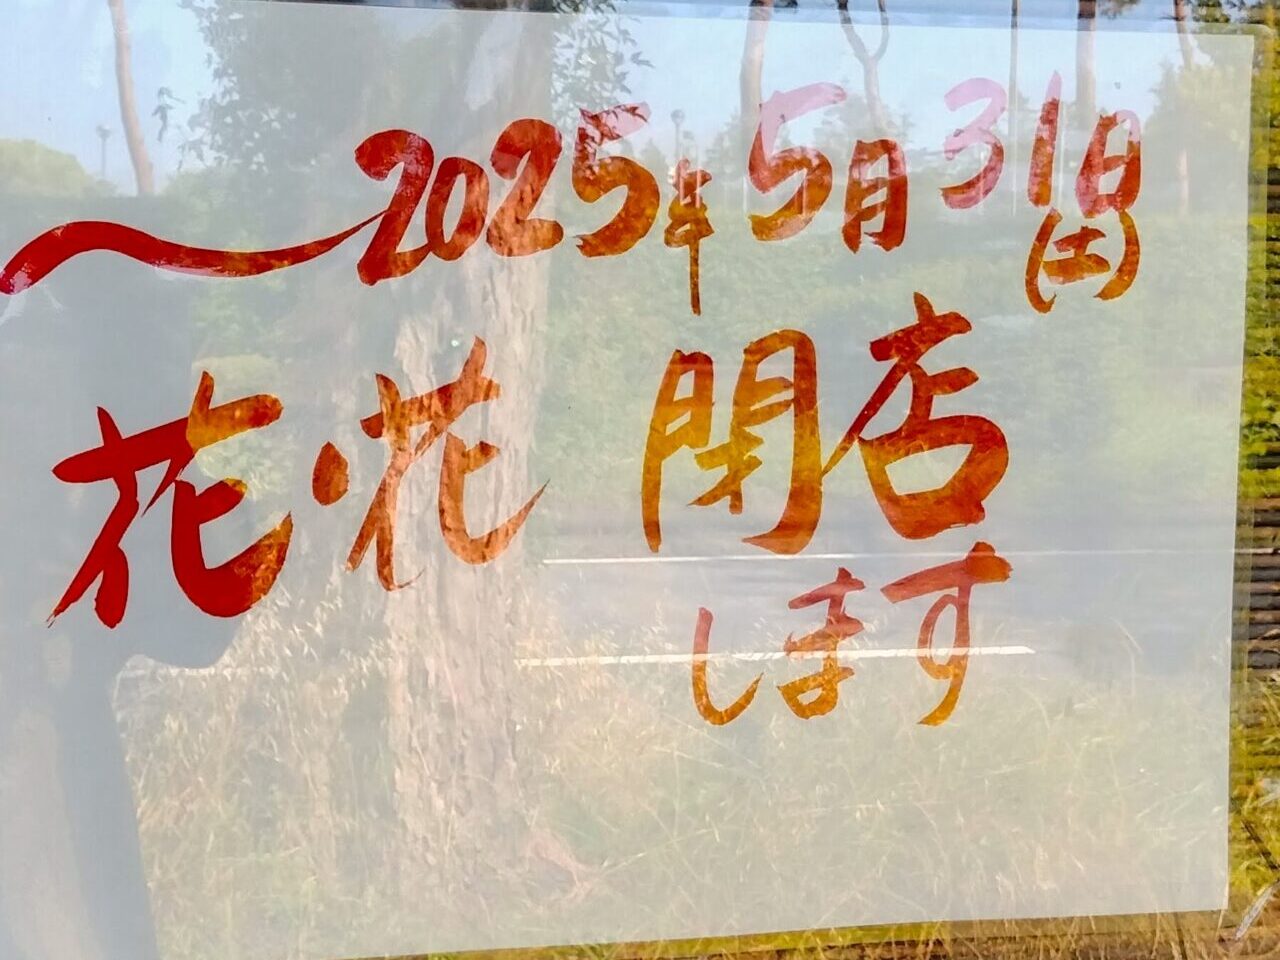 〜2025年5月31日
(土)
花・花 閉店
します